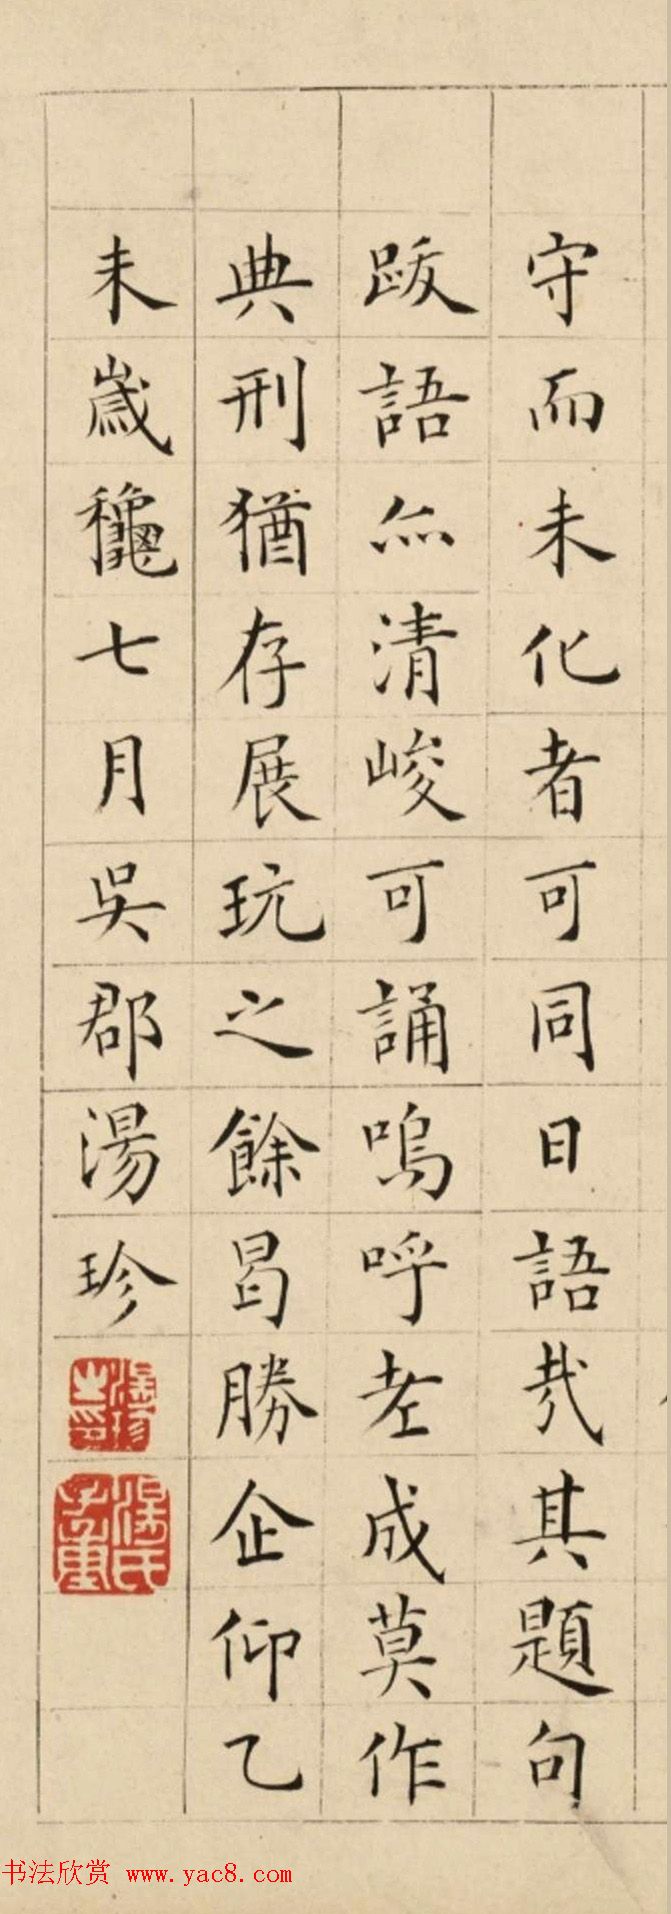 守而未化者可同日語哉其題句
跋語亦清峻可誦嗚呼老成莫作
典刑猶存展玩之餘曷勝企仰乙
未歲龝七月吳郡湯珍
湯珍之印
湯氏子重
书法欣赏 www.yac8.com